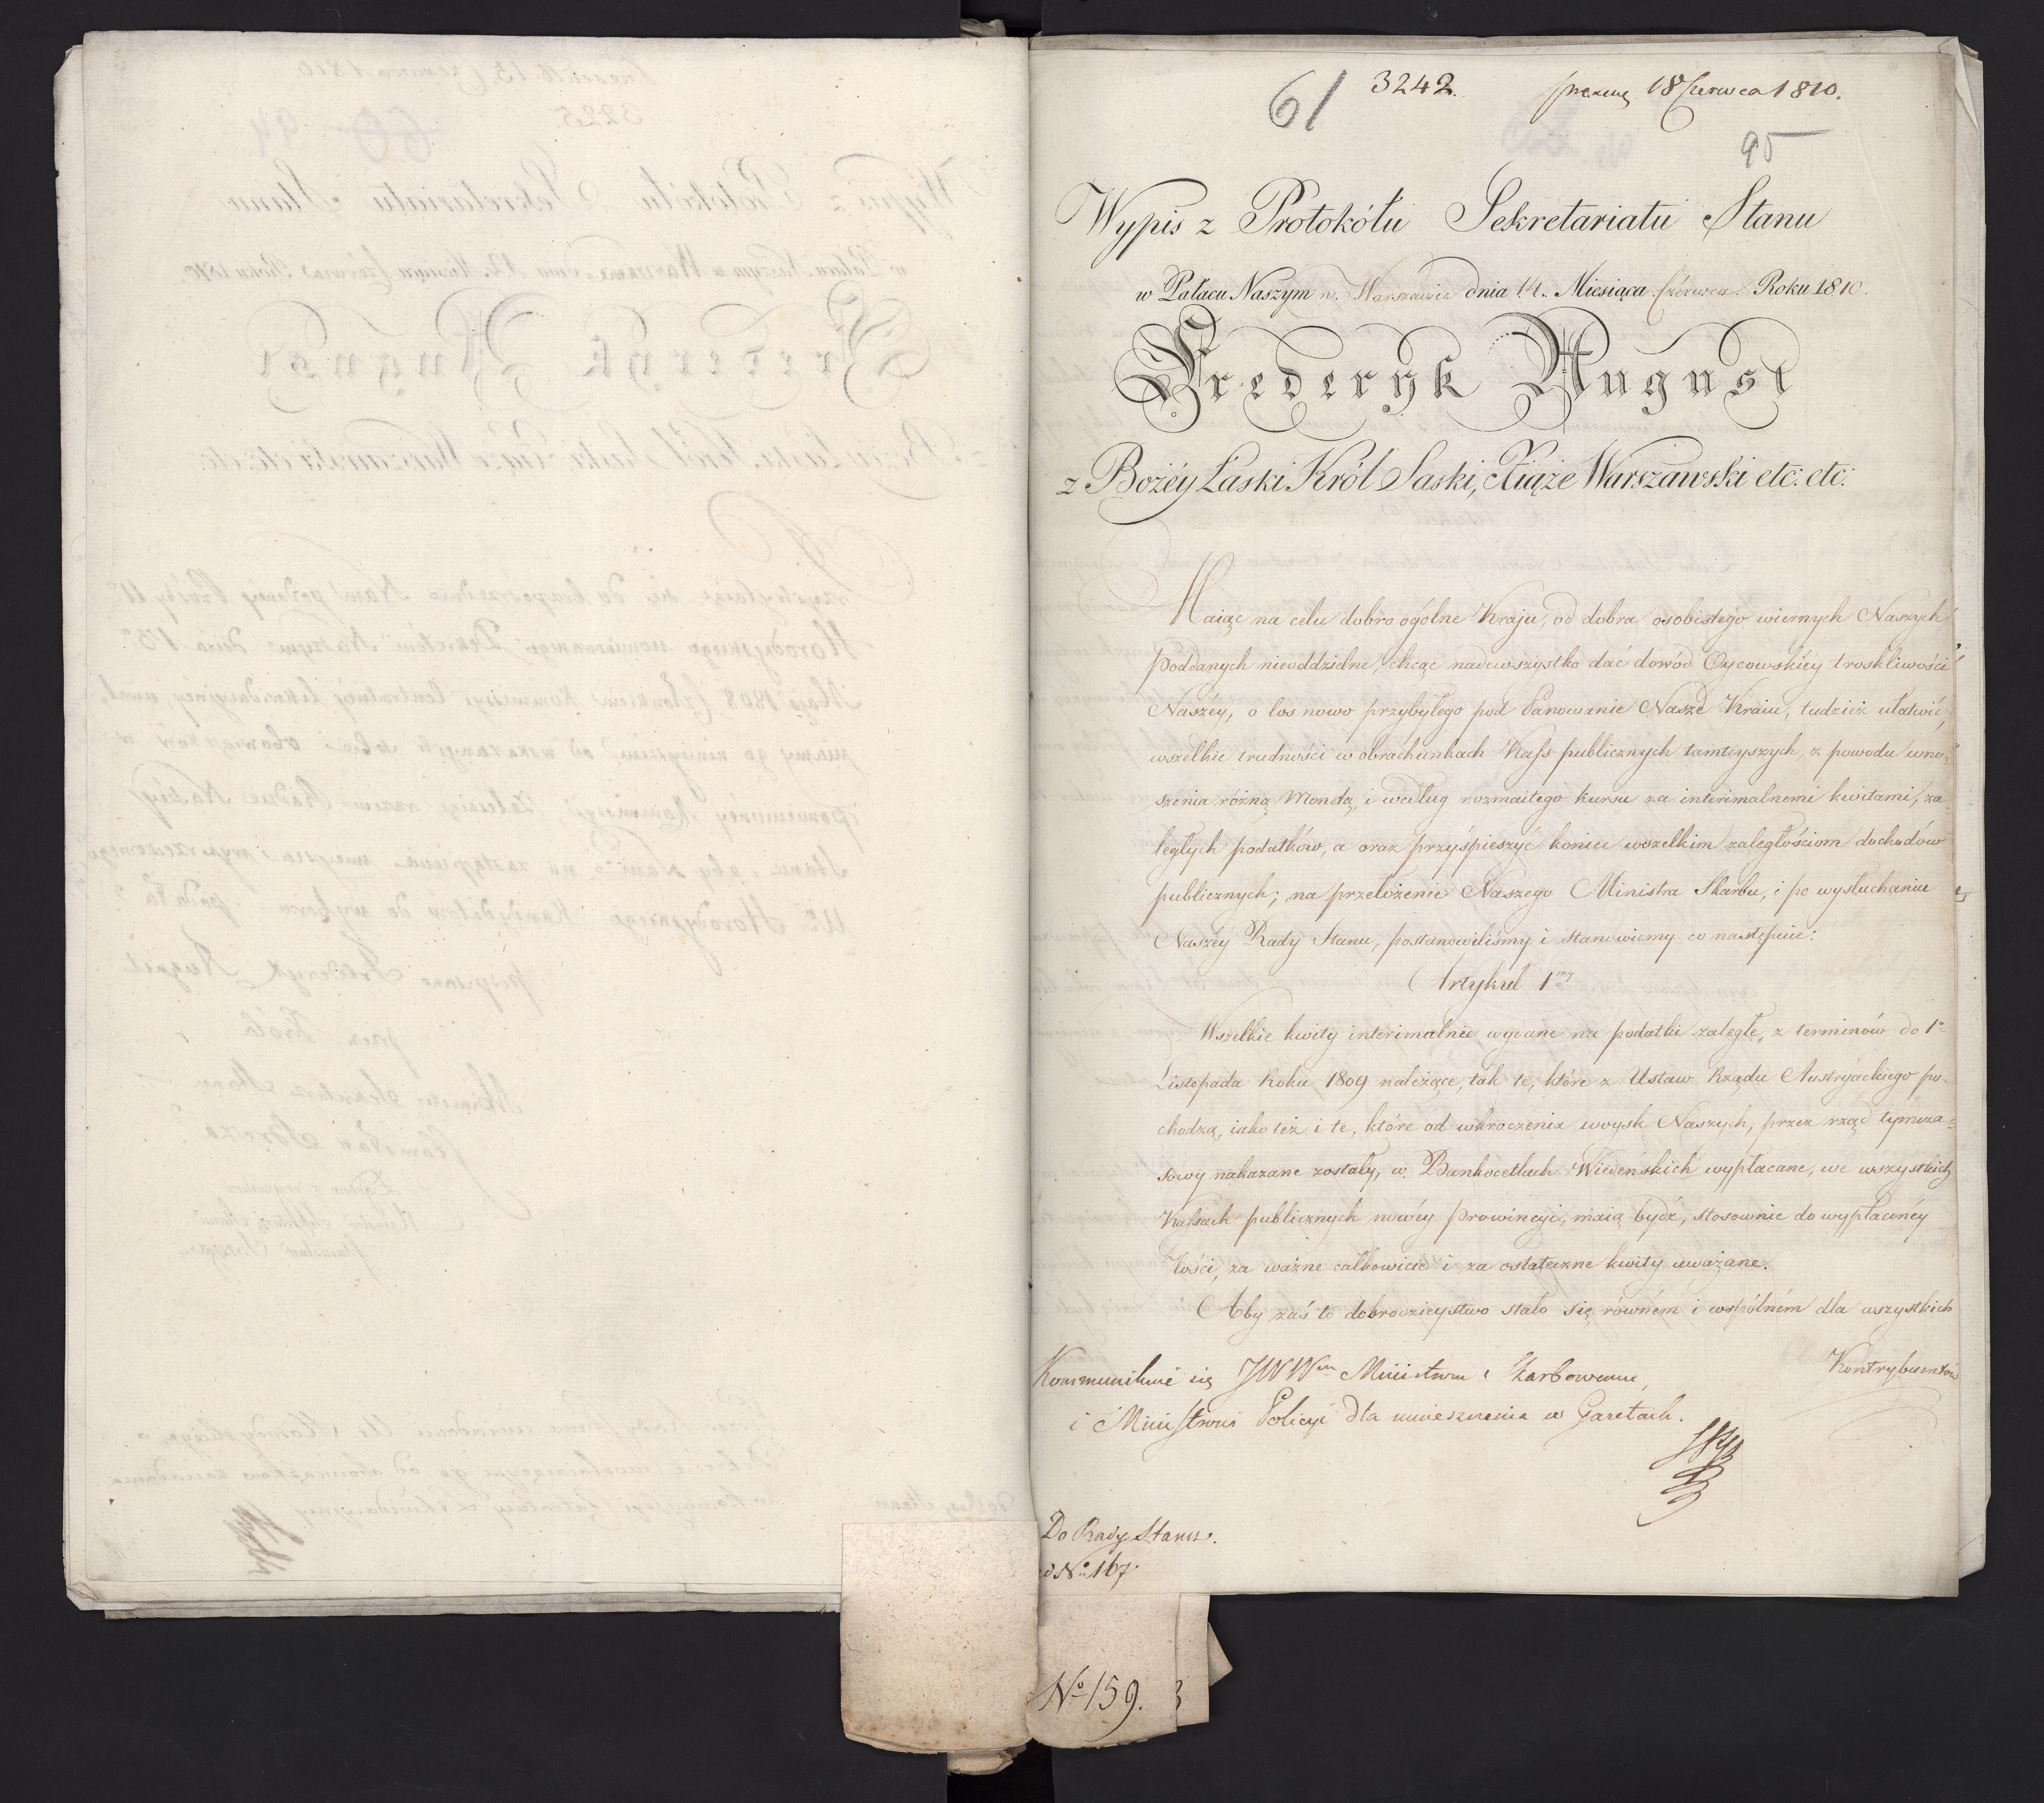 61
3242.
18 Czerwca 1810.
95
Wypis z Protokółu Sekretariatu Stanu
w Pałacu Naszym w Warszawie dnia 14. Miesiąca Czérwca Roku 1810.
Frederyk August
z Bożéy Łaski Król Saski, Xiąże Warszawski etc: etc:
Maiąc na celu dobro ogólne Kraju, od dobra osobistego wiernych Naszych
Poddanych nieoddzielne, chcąc nadewszystko dać dowód Oycowskiéy troskliwości
Naszéy, o los nowo przybyłego pod Panowanie Nasze Kraiu, tudzież ułatwić
wszelkie trudności w obrachunkach Kass publicznych tamteyszych, z powodu wno-
szenia różną Monetą, i według rozmaitego kursu za interimalnemi kwitami, za-
ległych podatków, a oraz przyśpieszyć koniec wszelkim zaległościom dochodów
publicznych; na przełożenie Naszego Ministra Skarbu, i po wysłuchaniu
Naszéy Rady Stanu, postanowiliśmy i stanowiemy co następuie:
Artykuł 1ny
Wszelkie kwity interimalnie wydane na podatki zaległe, z terminów do 1o
Listopada Roku 1809 należące, tak te, które z Ustaw Rządu Austryackiego po-
chodzą, iako też i te, które od wkroczenia woysk Naszych, przez rząd tymcza-
sowy nakazane zostały, w Bankocetlach Wiedeńskich wypłacane, we wszystkich
Kassach publicznych nowéy prowincyi, maią bydź, stosownie do wypłaconéy
Ilości, za ważne całkowicie i za ostateczne kwity uważane.
Aby zaś to dobrodzieystwo stało się równém i wspólném dla wszystkich
Kontrybuentów
Kommunikuie się JWWm Ministrom Skarbowemu,
i Ministrowi Policyi dla umieszczenia w Gazetach.
Do Rady Stanu.
No 167.
No 159.
3